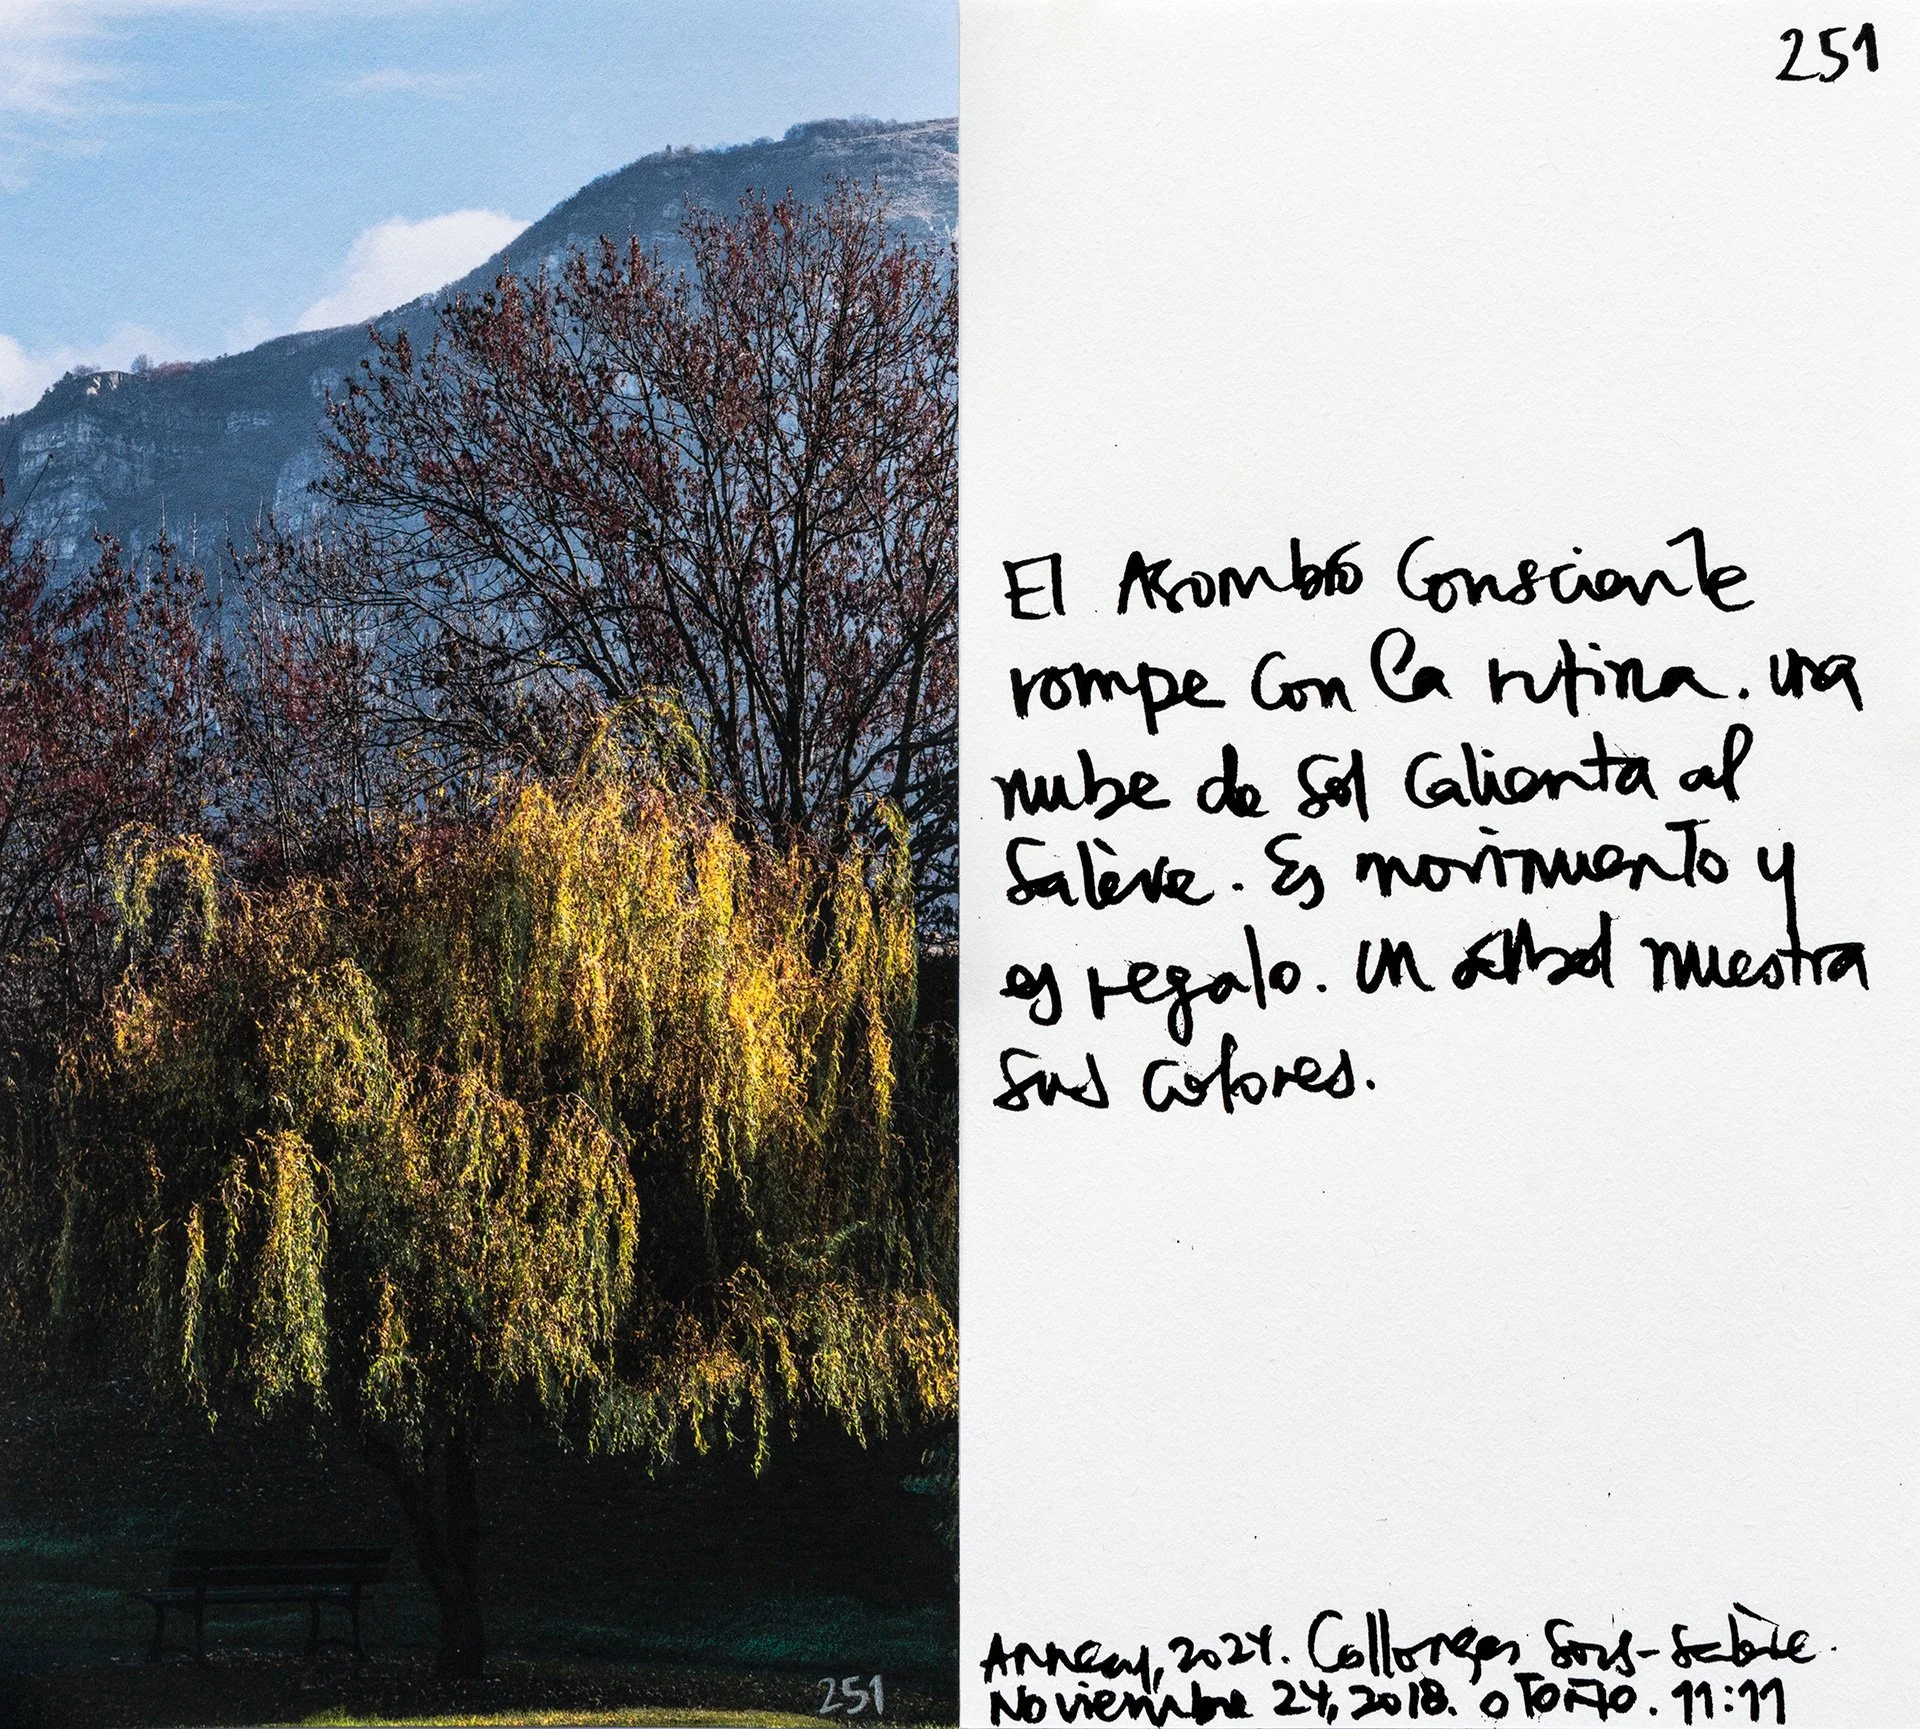 251
El Asombro Consciente
rompe con la rutina. una
nube de Sol Calienta al
Salève. Es movimiento y
es regalo. un árbol muestra
sus colores.
Annecy, 2024. Collonges Sous-Salève.
Noviembre 24, 2018. OTOÑO. 11:11
251